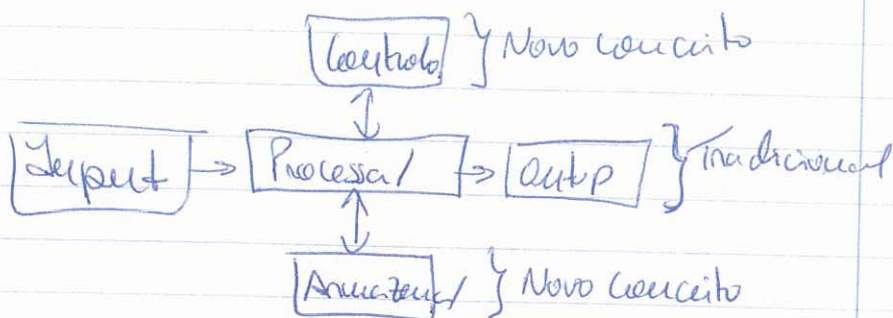 Controlo } Novo Conceito
Input → Processa/ → Outp } Tradicional
Armazena/ } Novo Conceito